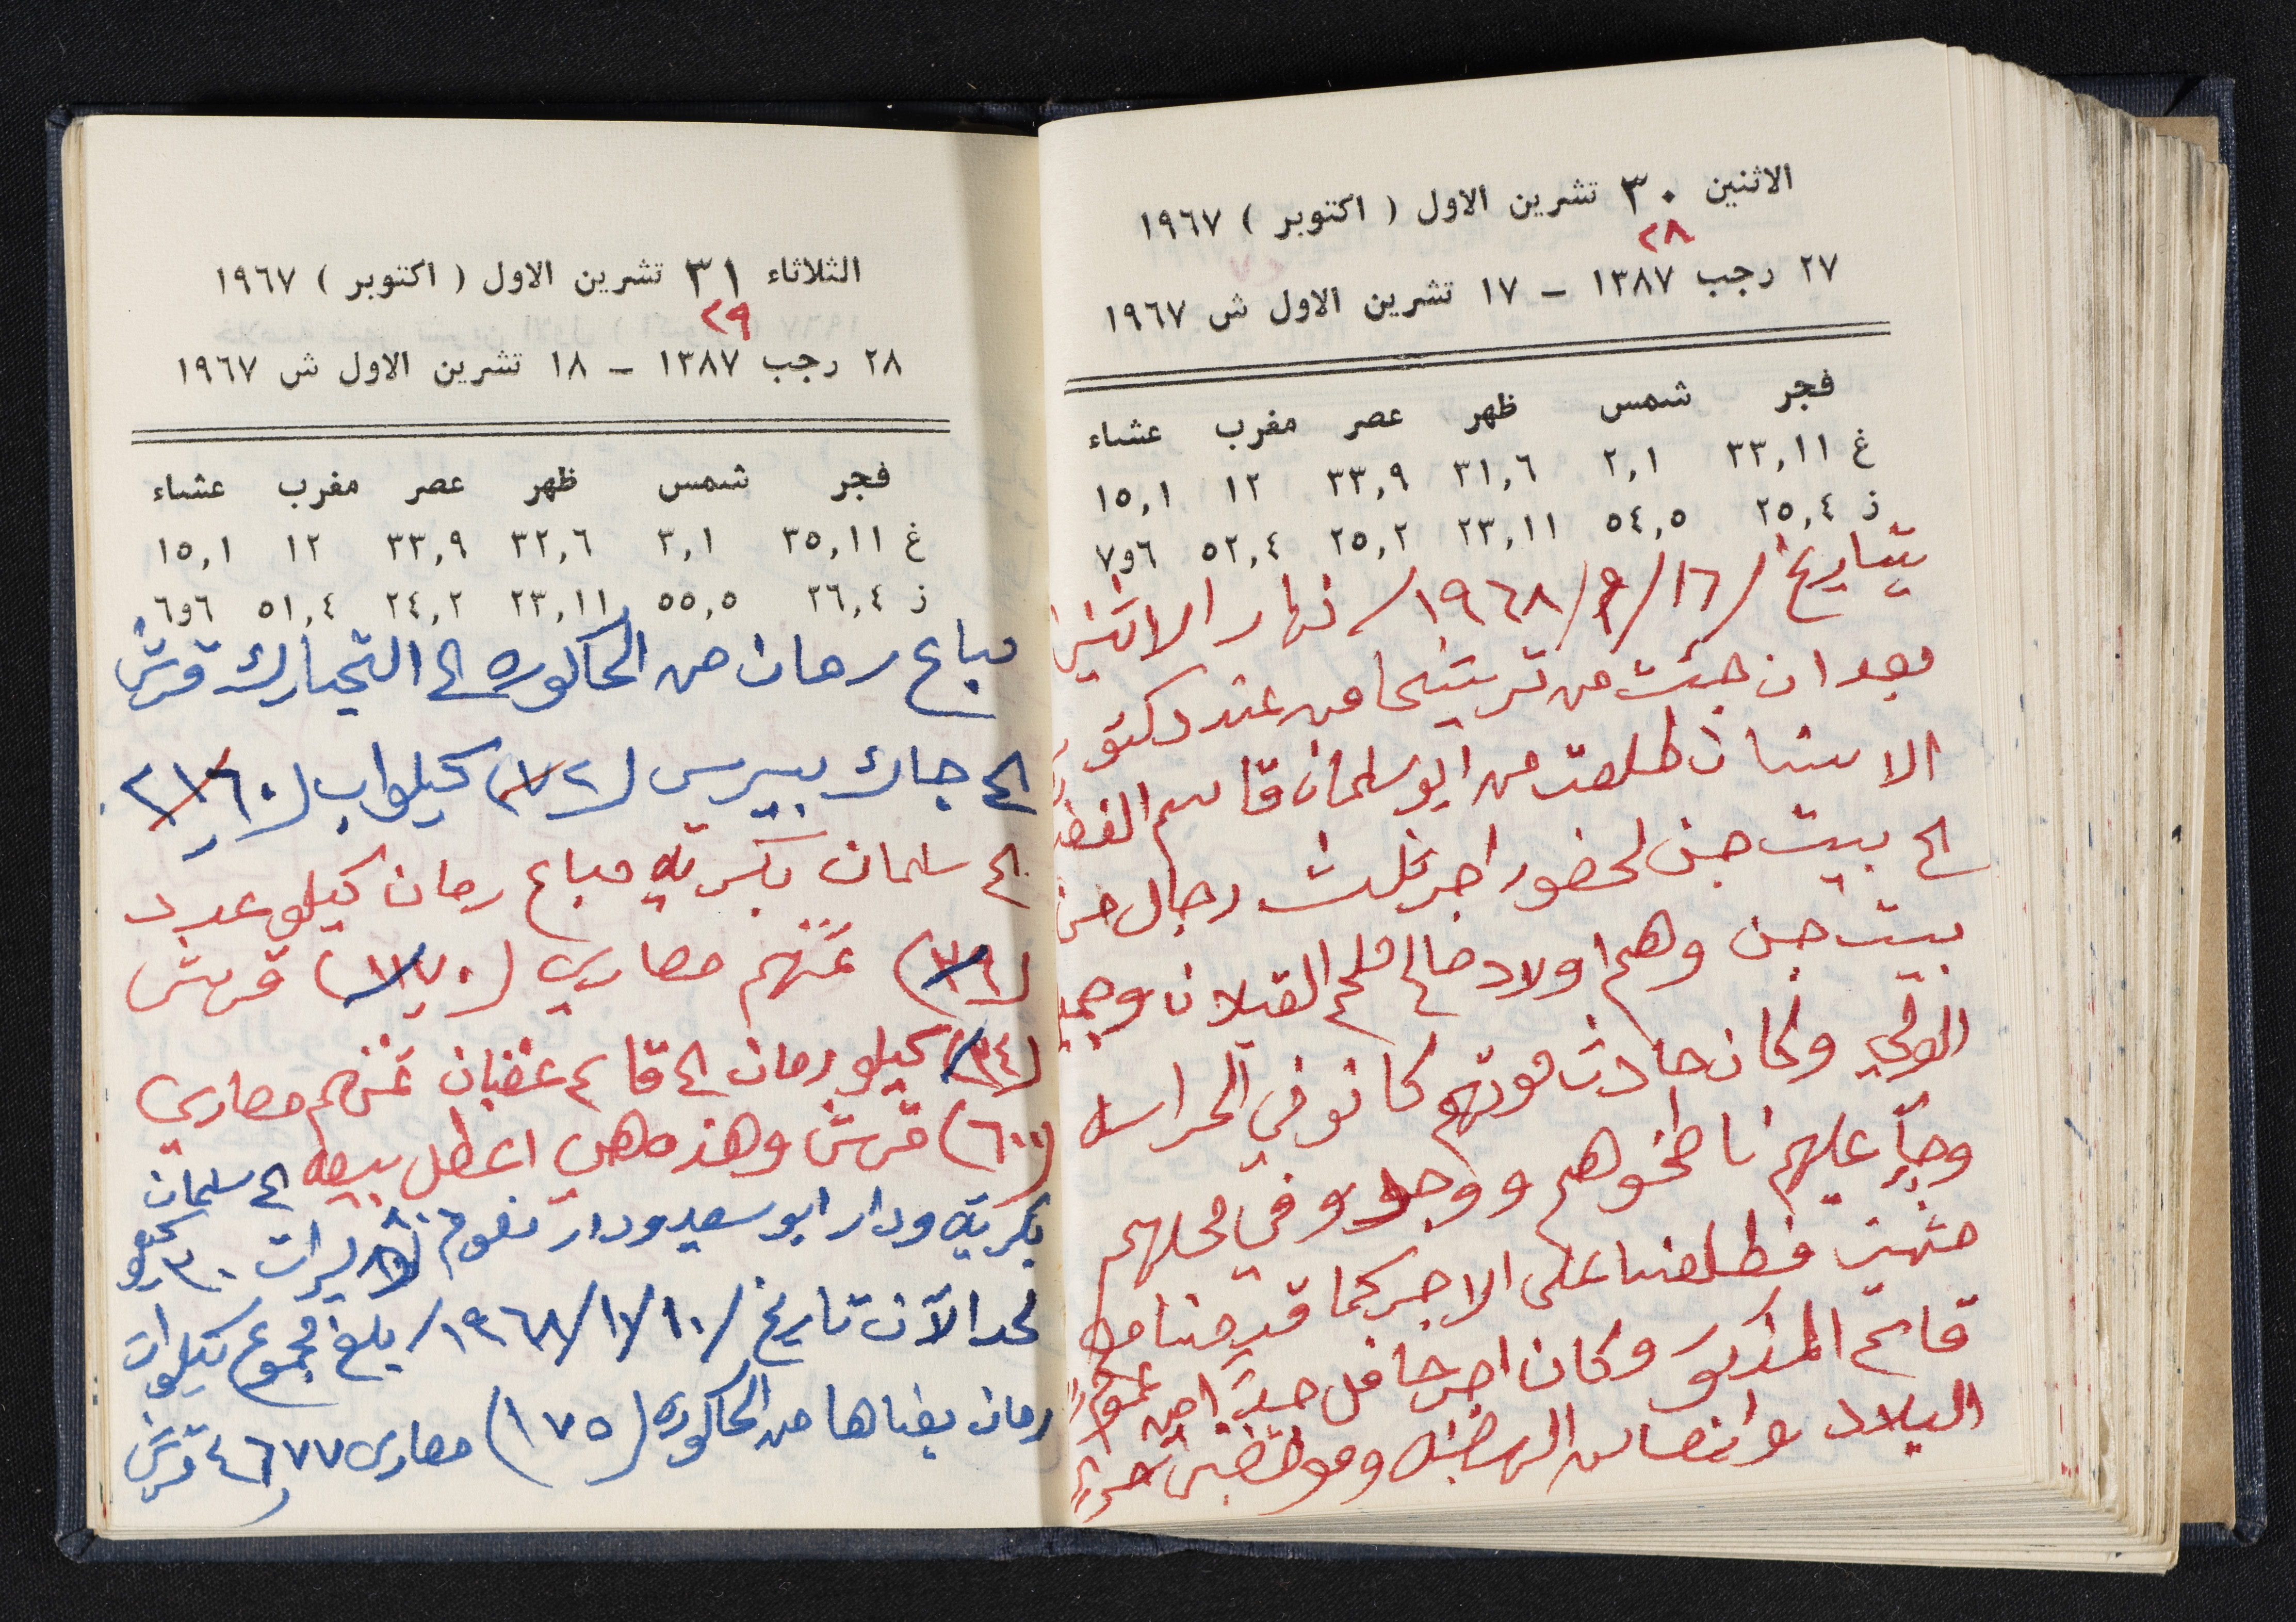 الاثنين ٣٠ تشرين الاول ( اكتوبر ) ١٩٦٧
٢٨
٢٧ رجب ١٣٨٧ – ١٧ تشرين الاول ش ١٩٦٧
فجر شمس ظهر عصر مغرب عشاء
غ ٣٣,١١ ٢,١ ٣١,٦ ٣٣,٩ ١٢ ١٥,١
ز ٢٥,٤ ٥٤,٥ ٢٣,١١ ٢٥,٢ ٥٢,٤ ٧و٦
بتاريخ /١٦/٩/١٩٦٨/ نهار الاثنين
بعد ان جئت من ترشيحا من عند دكتور
الاسنان طلعت من ابو سلمان قاسم
الى بيت جن لحضور اجر ثلث رجال من
بيت جن وهم اولاد صالح ملحم القبلان
الولي وكان حادث موتهم كانو في الحراسه
وجآ عليهم ناطخوهم ووجدو في محلهم
فطلعنا على الاجر كما قدمنا مع
قاسم المذكور وكان اجر حافل جدآ من عموم
البلاد وانصار السلطه وموظفين
الثلاثاء ٣١ تشرين الاول ( اكتوبر ) ١٩٦٧
٢٩
٢٨ رجب ١٣٨٧ – ١٨ تشرين الاول ش ١٩٦٧
فجر شمس ظهر عصر مغرب عشاء
غ ٣٥,١١ ٣,١ ٣٢,٦ ٣٣,٩ ١٢ ١٥,١
ز ٢٦,٤ ٥٥,٥ ٢٣,١١ ٢٤,٢ ٥١,٤ ٦و٦
مباع رمان من الحاكوره الى التجارك قرش
الى جاك بيريس (٧٢) كيلو اب (٢١٦٠
الى سلمان بكريه مباع رمان كيلو عدد
(٣٩) ثمنهم مصاري (١١٧٠) قرش
(٢٤) كيلو رمان الى قاسم غضبان ثمنهم مصاري
(٦٠٠) قرش وهذه هي اعطل بيعه الى سلمان
بكريه ودار ابو سعيد ودار نعوم ليرات ٣٠ كيلو
لحد الآن تاريخ /١٠/١٠/١٩٦٨/ بلغ مجموع كيلوات
رمان بعناها من الحاكوره (١٧٥) مصاري ٤٦٧٧ قرش